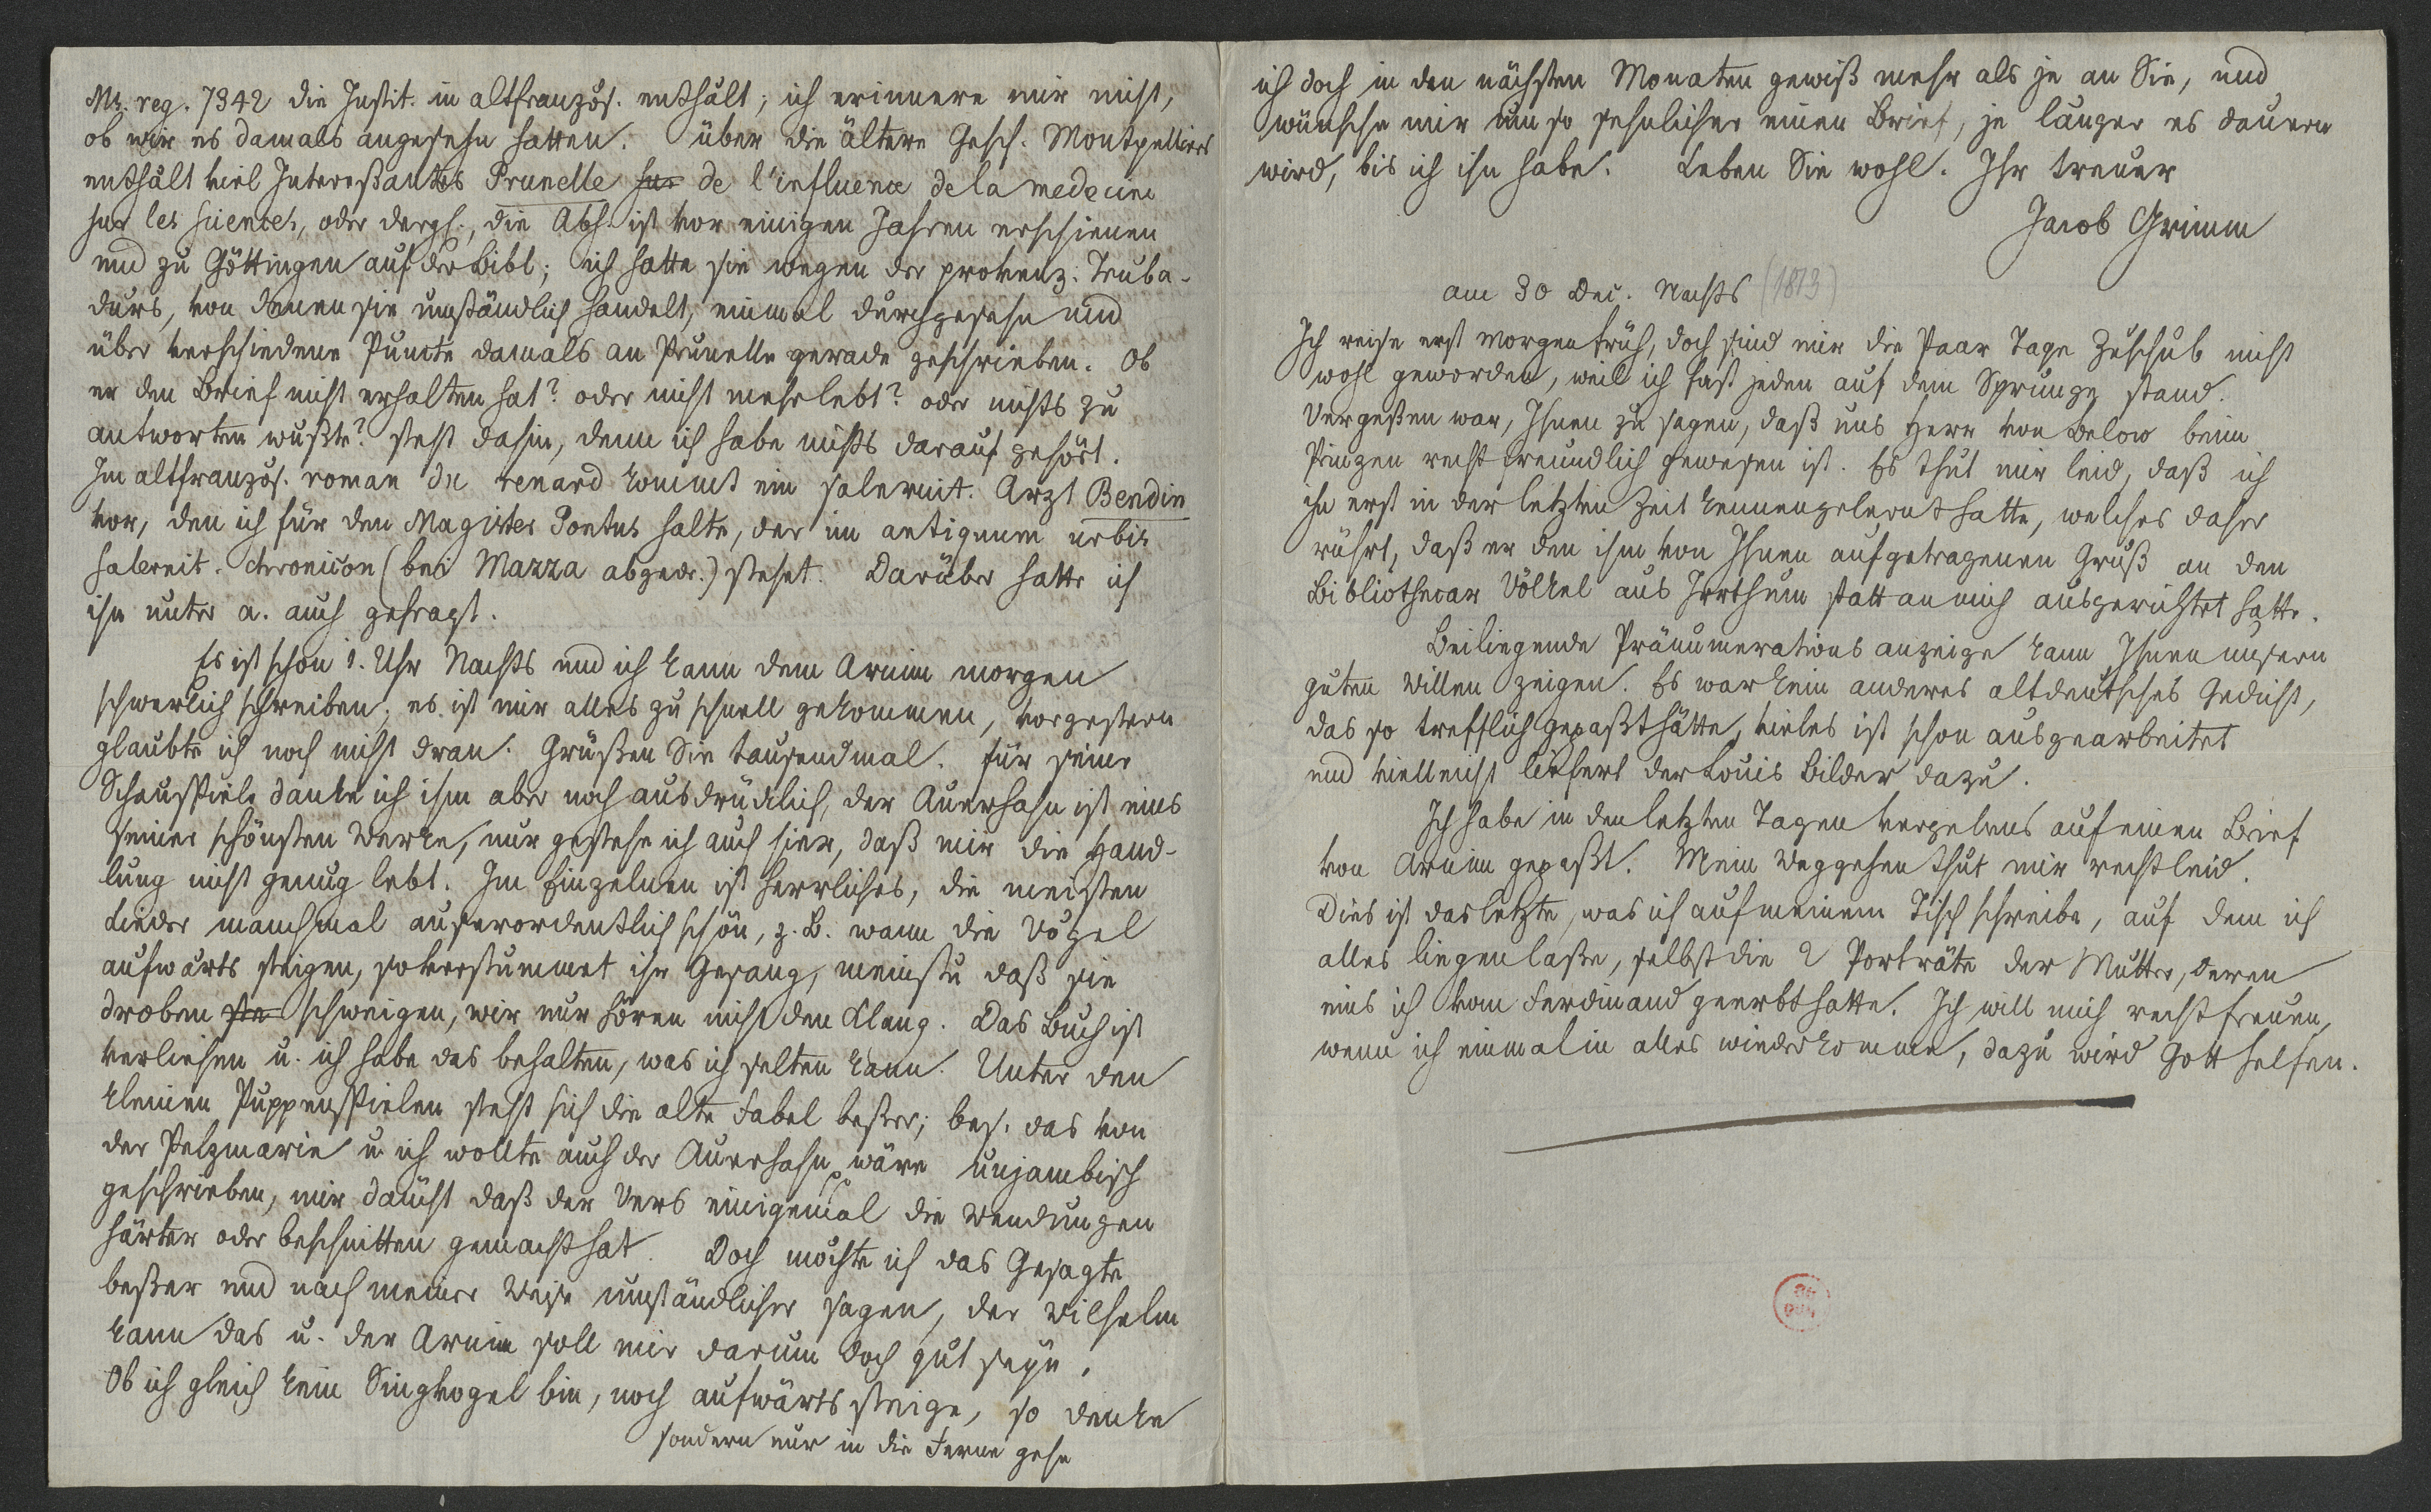 Ms. reg. 7342 die Instit. in altfranzös. enthält; ich erinnere mir nicht,
ob wir es damals angesehn hatten. über die ältere Gesch. Montpelliers
enthält viel Interessantes Prunelle sur de l'influence de la medecine
sur les sciences, oder dergl., die Abh. ist vor einigen Jahren erschienen
und zu Göttingen auf der Bibl; ich hatte sie wegen der provenz. Truba-
durs, von denen sie umständlich handelt, einmal durchgesehn und
über verschiedene Puncte damals an Prunelle gerade geschrieben. Ob
er den Brief nicht erhalten hat? oder nicht mehr lebt? oder nichts zu
antworten wußte? steht dahin, denn ich habe nichts darauf gehört.
Im altfranzös. roman du renard kommt ein salernit. Arzt Bendin
vor, den ich für den Magister Pontus halte, der im antiquum urbis
salernit. chronicon (bei Mazza abgedr.) stehet. Darüber hatte ich
ihn unter a. auch gefragt.
Es ist schon 1. Uhr Nachts und ich kann dem Arnim morgen
schwerlich schreiben; es ist mir alles zu schnell gekommen, vorgestern
glaubte ich noch nicht dran. Grüßen Sie tausendmal. für seine
Schauspiele danke ich ihm aber noch ausdrücklich, der Auerhahn ist eins
seiner schönsten Werke, nur gestehe ich auch hier, daß mir die Hand-
lung nicht genug lebt. Im Einzelnen ist herrliches, die meisten
Lieder manchmal auserordentlich schön, z. B. wann die Vögel
aufwärts steigen, so verstummet ihr Gesang, meinst du daß sie
droben ste schweigen, wir nur hören nicht den Klang. Das Buch ist
verliehen u. ich habe das behalten, was ich selten kann. Unter den
kleinen Puppenspielen steht sich die alte Fabel beßer; bes. das von
der Pelzmarie u ich wollte auch der Auerhahn wäre unjambisch
geschrieben, mir däucht daß der Vers einigemal die Wendungen
härter oder beschnitten gemacht hat. Doch möchte ich das Gesagte
beßer und nach meiner Weise umständlicher sagen, der Wilhelm
kann das u. der Arnim soll mir darum doch gut seyn.
Ob ich gleich kein Singvogel bin, noch aufwärts steige, so denke
sondern nur in die Ferne gehe
ich doch in den nächsten Monaten gewiß mehr als je an Sie, und
wünsche mir um so sehnlicher einen Brief, je länger es dauern
wird, bis ich ihn habe. Leben Sie wohl. Ihr treuer
Jacob Grimm
am 30 Dec. Nachts (1813)
Ich reise erst morgen früh, doch sind mir die Paar Tage Zuschub nicht
wohl geworden, weil ich fast jeden auf dem Sprunge stand.
Vergeßen war, Ihnen zu sagen, daß uns Herr von Below beim
Prinzen recht freundlich gewesen ist. Es thut mir leid, daß ich
ihn erst in der letzten Zeit kennengelernt hatte, welches daher
rührt, daß er den ihm von Ihnen aufgetragenen Gruß an den
Bibliothecar Völkel aus Irrthum statt an mich ausgerichtet hatte.
Beiliegende Pränumerations anzeige kann Ihnen unsern
guten Willen zeigen. Es war kein anderes altdeutsches Gedicht,
das so trefflich gepaßt hätte, vieles ist schon ausgearbeitet
und vielleicht liefert der Louis Bilder dazu.
Ich habe in den letzten Tagen vergebens auf einen Brief
von Arnim gepaßt. Mein Weggehen thut mir recht leid.
Dies ist das letzte, was ich auf meinem Tisch schreibe, auf dem ich
alles liegen laße, selbst die 2 Porträte der Mutter, deren
eins ich vom Ferdinand geerbt hatte. Ich will mich recht freuen,
wenn ich einmal in alles wiederkomme, dazu wird Gott helfen.